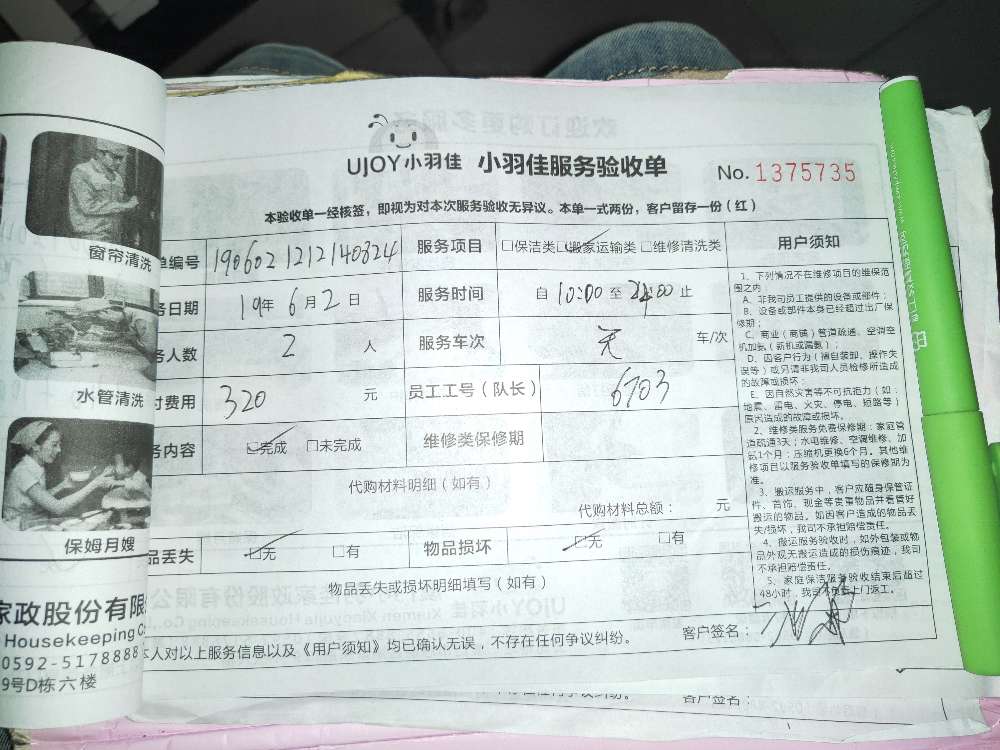 UJOY小羽佳 小羽佳服务验收单 No. 1375735
本验收单一经核签，即视为对本次服务验收无异议。本单一式两份，客户留存一份（红）
单编号 190602 1212140324 服务项目 □保洁类 □搬家运输类 □维修清洗类
务日期 19年 6月2日 服务时间 自 10:00 至 止
务人数 2 人 服务车次 无 车/次
付费用 320 元 员工工号（队长） 6703
务内容 □完成 □未完成 维修类保修期
代购材料明细（如有）
代购材料总额： 元
品丢失 □无 □有 物品损坏 □无 □有
物品丢失或损坏明细填写（如有）
本人对以上服务信息以及《用户须知》均已确认无误，不存在任何争议纠纷。 客户签名：
用户须知
1、下列情况不在维修项目的维保范
围之内
A、非我司员工提供的设备或部件；
B、设备或部件本身已经超过出厂保
修期；
C、商业（商铺）管道疏通、空调空
机加氨（新机或漏氨）；
D、因客户行为（擅自装卸、操作失
误等）或另请非我司人员检修所造成
的故障或损坏；
E、因自然灾害等不可抗拒力（如
地震、雷电、火灾、停电、短路等）
原因造成的故障或损坏。
2、维修类服务免费保修期：家庭管
道疏通3天；水电维修、空调维修、加
氨1个月；压缩机更换6个月。其他维
修项目以服务验收单填写的保修期为
准。
3、搬运服务中，客户应随身保管证
件、首饰、现金等贵重物品并看管好
搬运的物品。如因客户造成的物品丢
失/损坏，我司不承担赔偿责任。
4、搬运服务验收时，如外包装或物
品外观无搬运造成的损伤痕迹，我司
不承担赔偿责任。
5、家庭保洁服务验收结束后超过
48小时，我司不负责上门返工。
窗帘清洗
水管清洗
保姆月嫂
家政股份有限
Housekeeping C
0592-5178888
9号D栋六楼
客户签名：